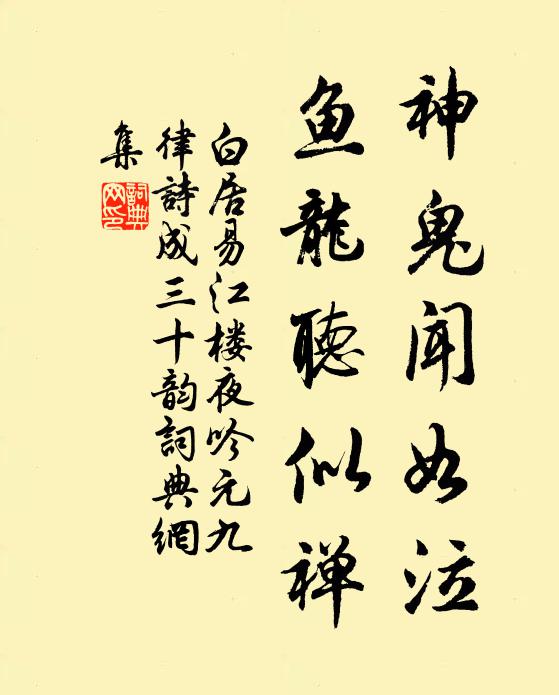 神鬼闻如泣
鱼龍聽似禅
白居易江楼夜吟元九
律詩成三十韵詞典網
集
詞典
网印